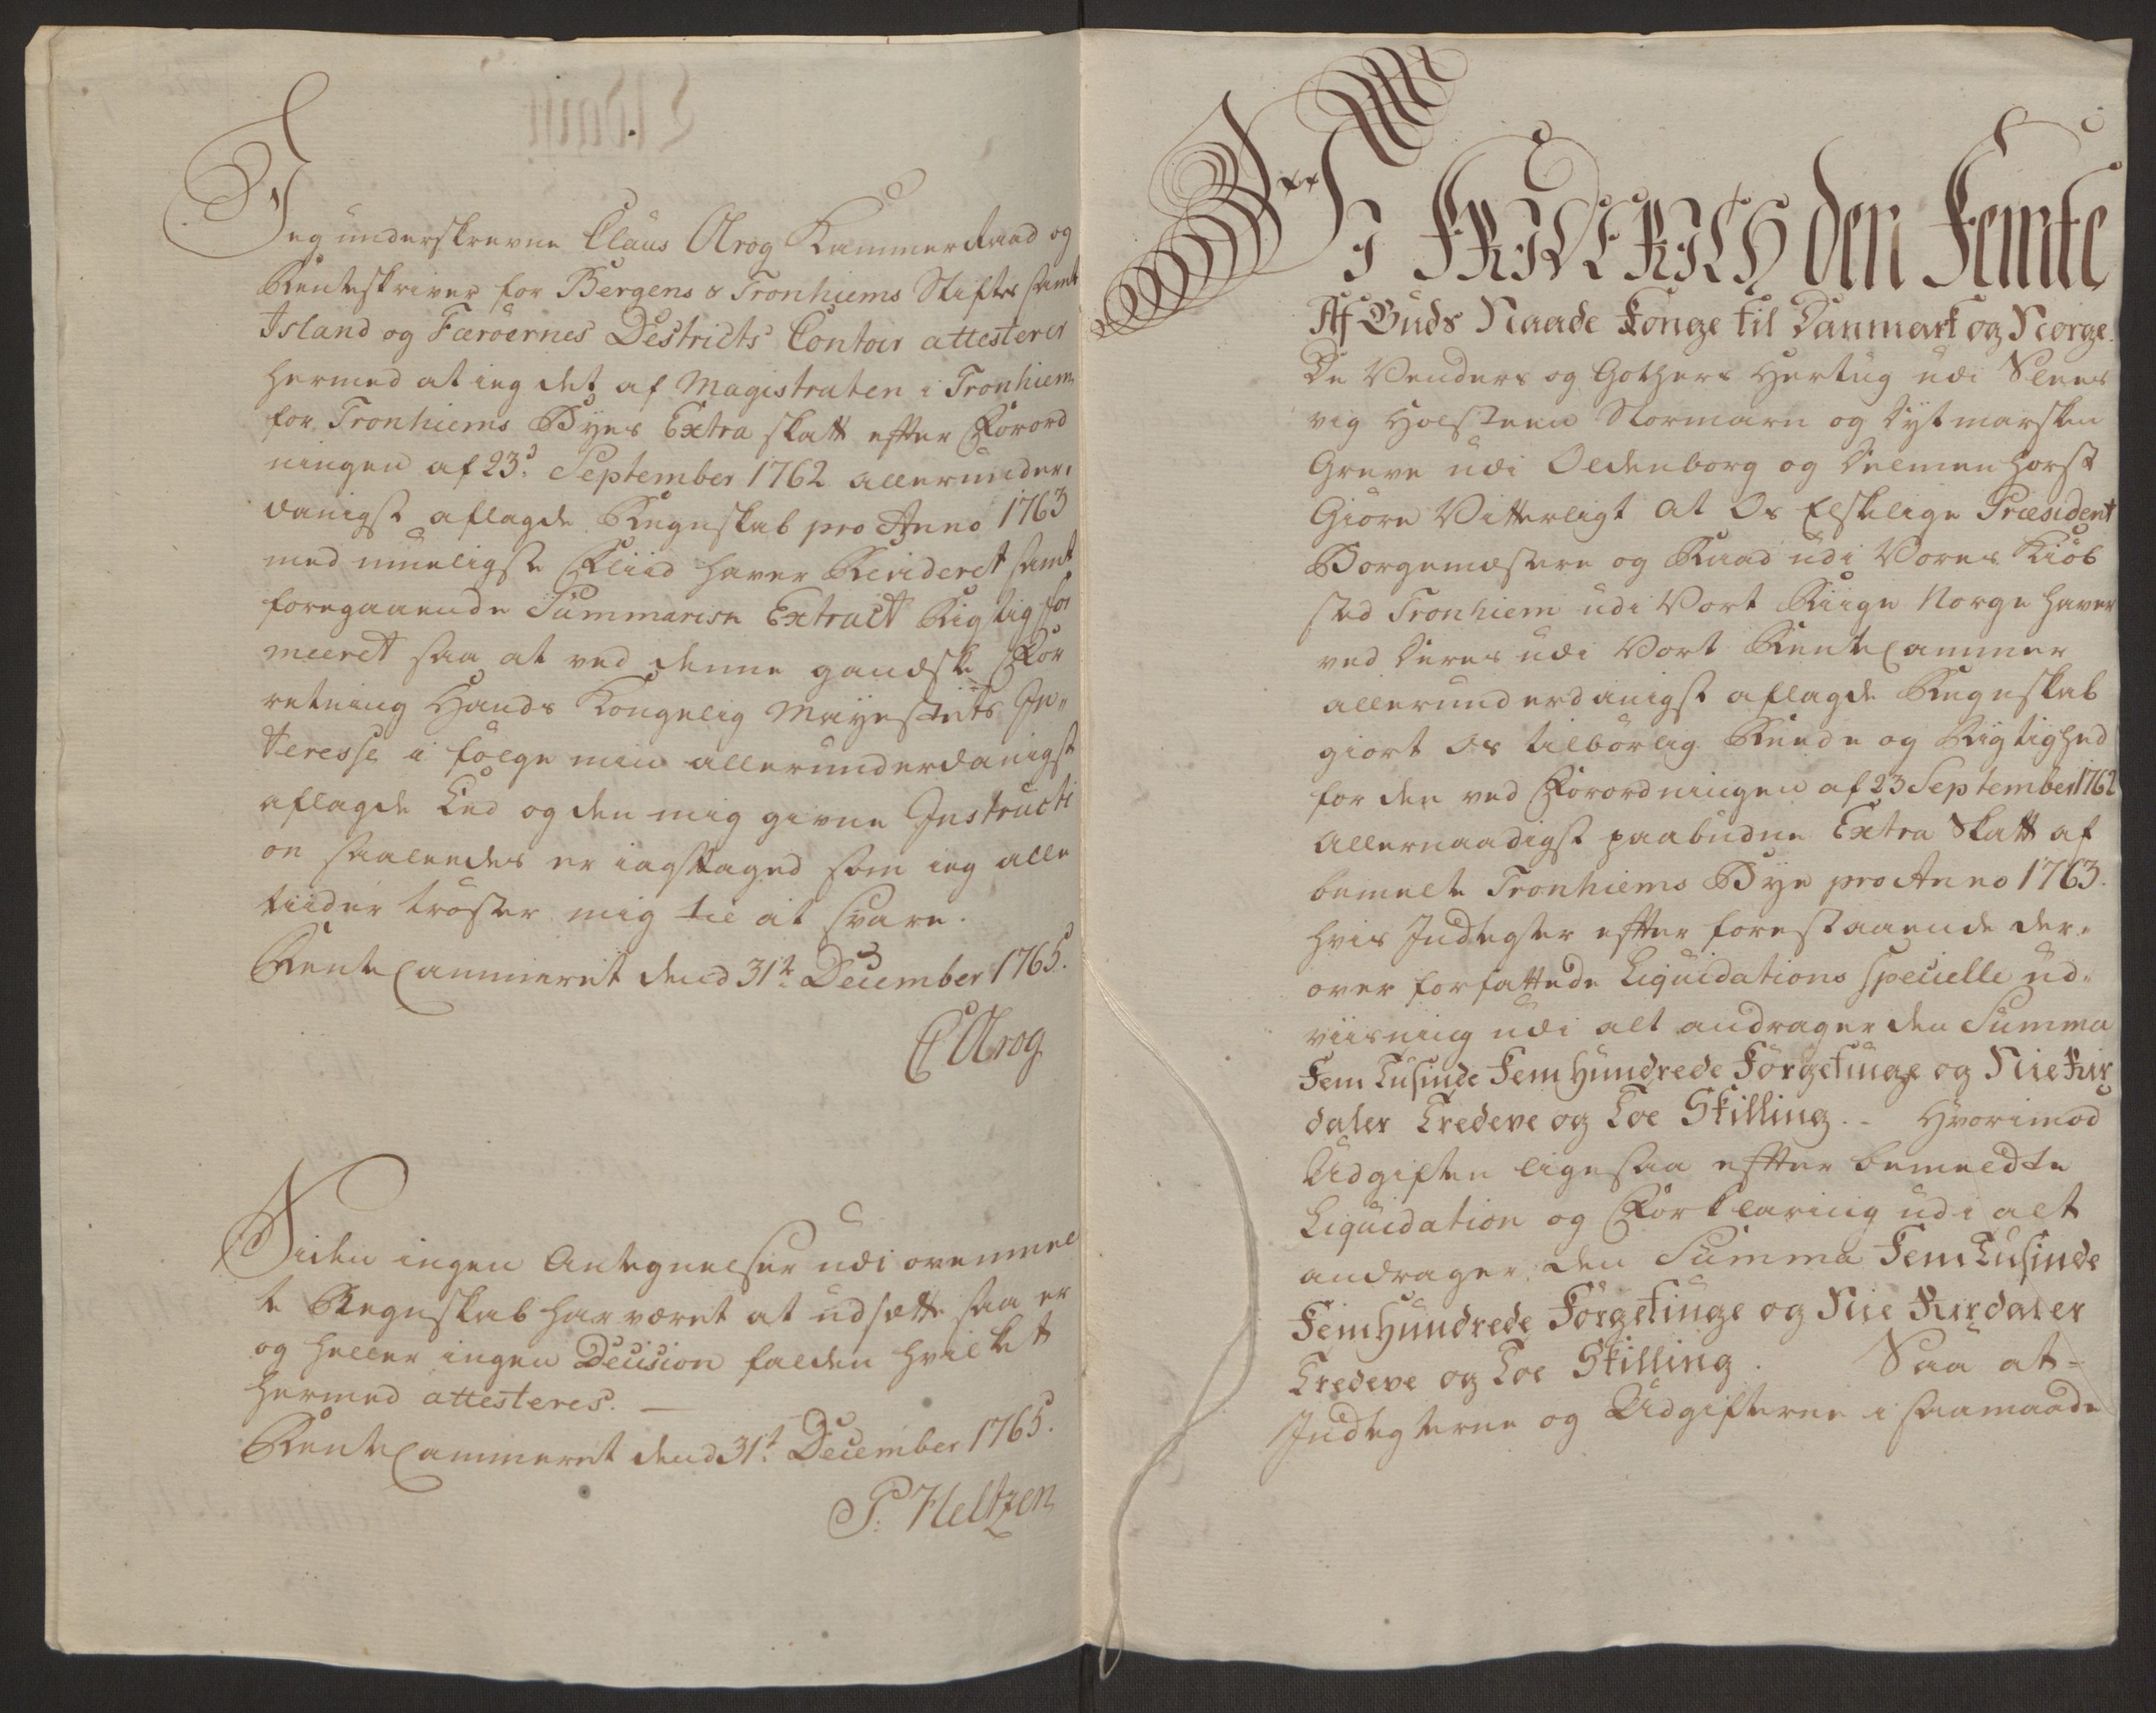 Jeg underskrevne Claus Krog Kammer Raad og
Renteskriver for Bergens & Tronhiems Stifter samt
Island og Færöernes Destricts Contoir attesterer
hermed at ieg det af Magistraten i Tronhiem
for Tronhiems Byes Extra skatt efter Forord
ningen af 23d. September 1762 allerunder-
danigst aflagde Regnskab pro Anno 1763
med mueligste Fliid haver Revideret samt
foregaaende Summarisk Extract Rigtig for
meeret saa at ved denne gandske For
retning Hands Kongelig Mayestets In„
teresse i følge min allerunderdanigst
aflagde Eed og den mig givne Instructi
on saaledes er iagttaged som ieg alle
tiider trøster mig til at svare.
RenteCammeret dend 31te December 1765.
C Krog
Siden ingen Antegnelser udi ovenmel
te Regnskab har været at udsætte saa er
og heller ingen Decision falden hvilket
hermed attesteres. —
RenteCammeret dend 31t. December 1765.
P: Heltzen
Wi FRIDERICH den Femte
Af Guds Naade Konge til Danmark og Norge
De Venders og Gothers Hertug udi Sles
vig Holsteen Stormarn og Dytmarsken
Greve udi Oldenborg og Delmenhorst
Giøre Vitterligt at Os Elskelige Præsident
Borgemestere og Raad udi Vores Kiøb
sted Tronhiem udi Vort Riige Norge haver
ved Deres udi Vort RenteCammer
allerunderdanigst aflagde Regnskab
giort Os tilbørlig Reede og Rigtighed
for den ved Forordningen af 23 September 1762
Allernaadigst paabudne Extra Skatt af
bemelte Tronhiems Bye pro Anno 1763.
hvis Indtegter efter forestaaende der-
over forfattede Liquidations specielle ud-
viisning udi alt andrager den Summa
Fem Tusinde Fem Hundrede Førgetiuge og Nie Rix
daler Tredeve og Toe Skilling. - Hvorimod
Udgiften ligesaa efter bemeldte
Liquidation og Forklaring udi alt
andrager den Summa Fem Tusinde
Fem Hundrede Førgetiuge og Nie Rixdaler
Tredeve og Toe Skilling. Saa at-
Indtegterne og Udgifterne i saamaade